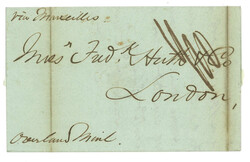 via Marseilles
Mess^rs Fred^k Huth & Co
London,
Overland Mail.